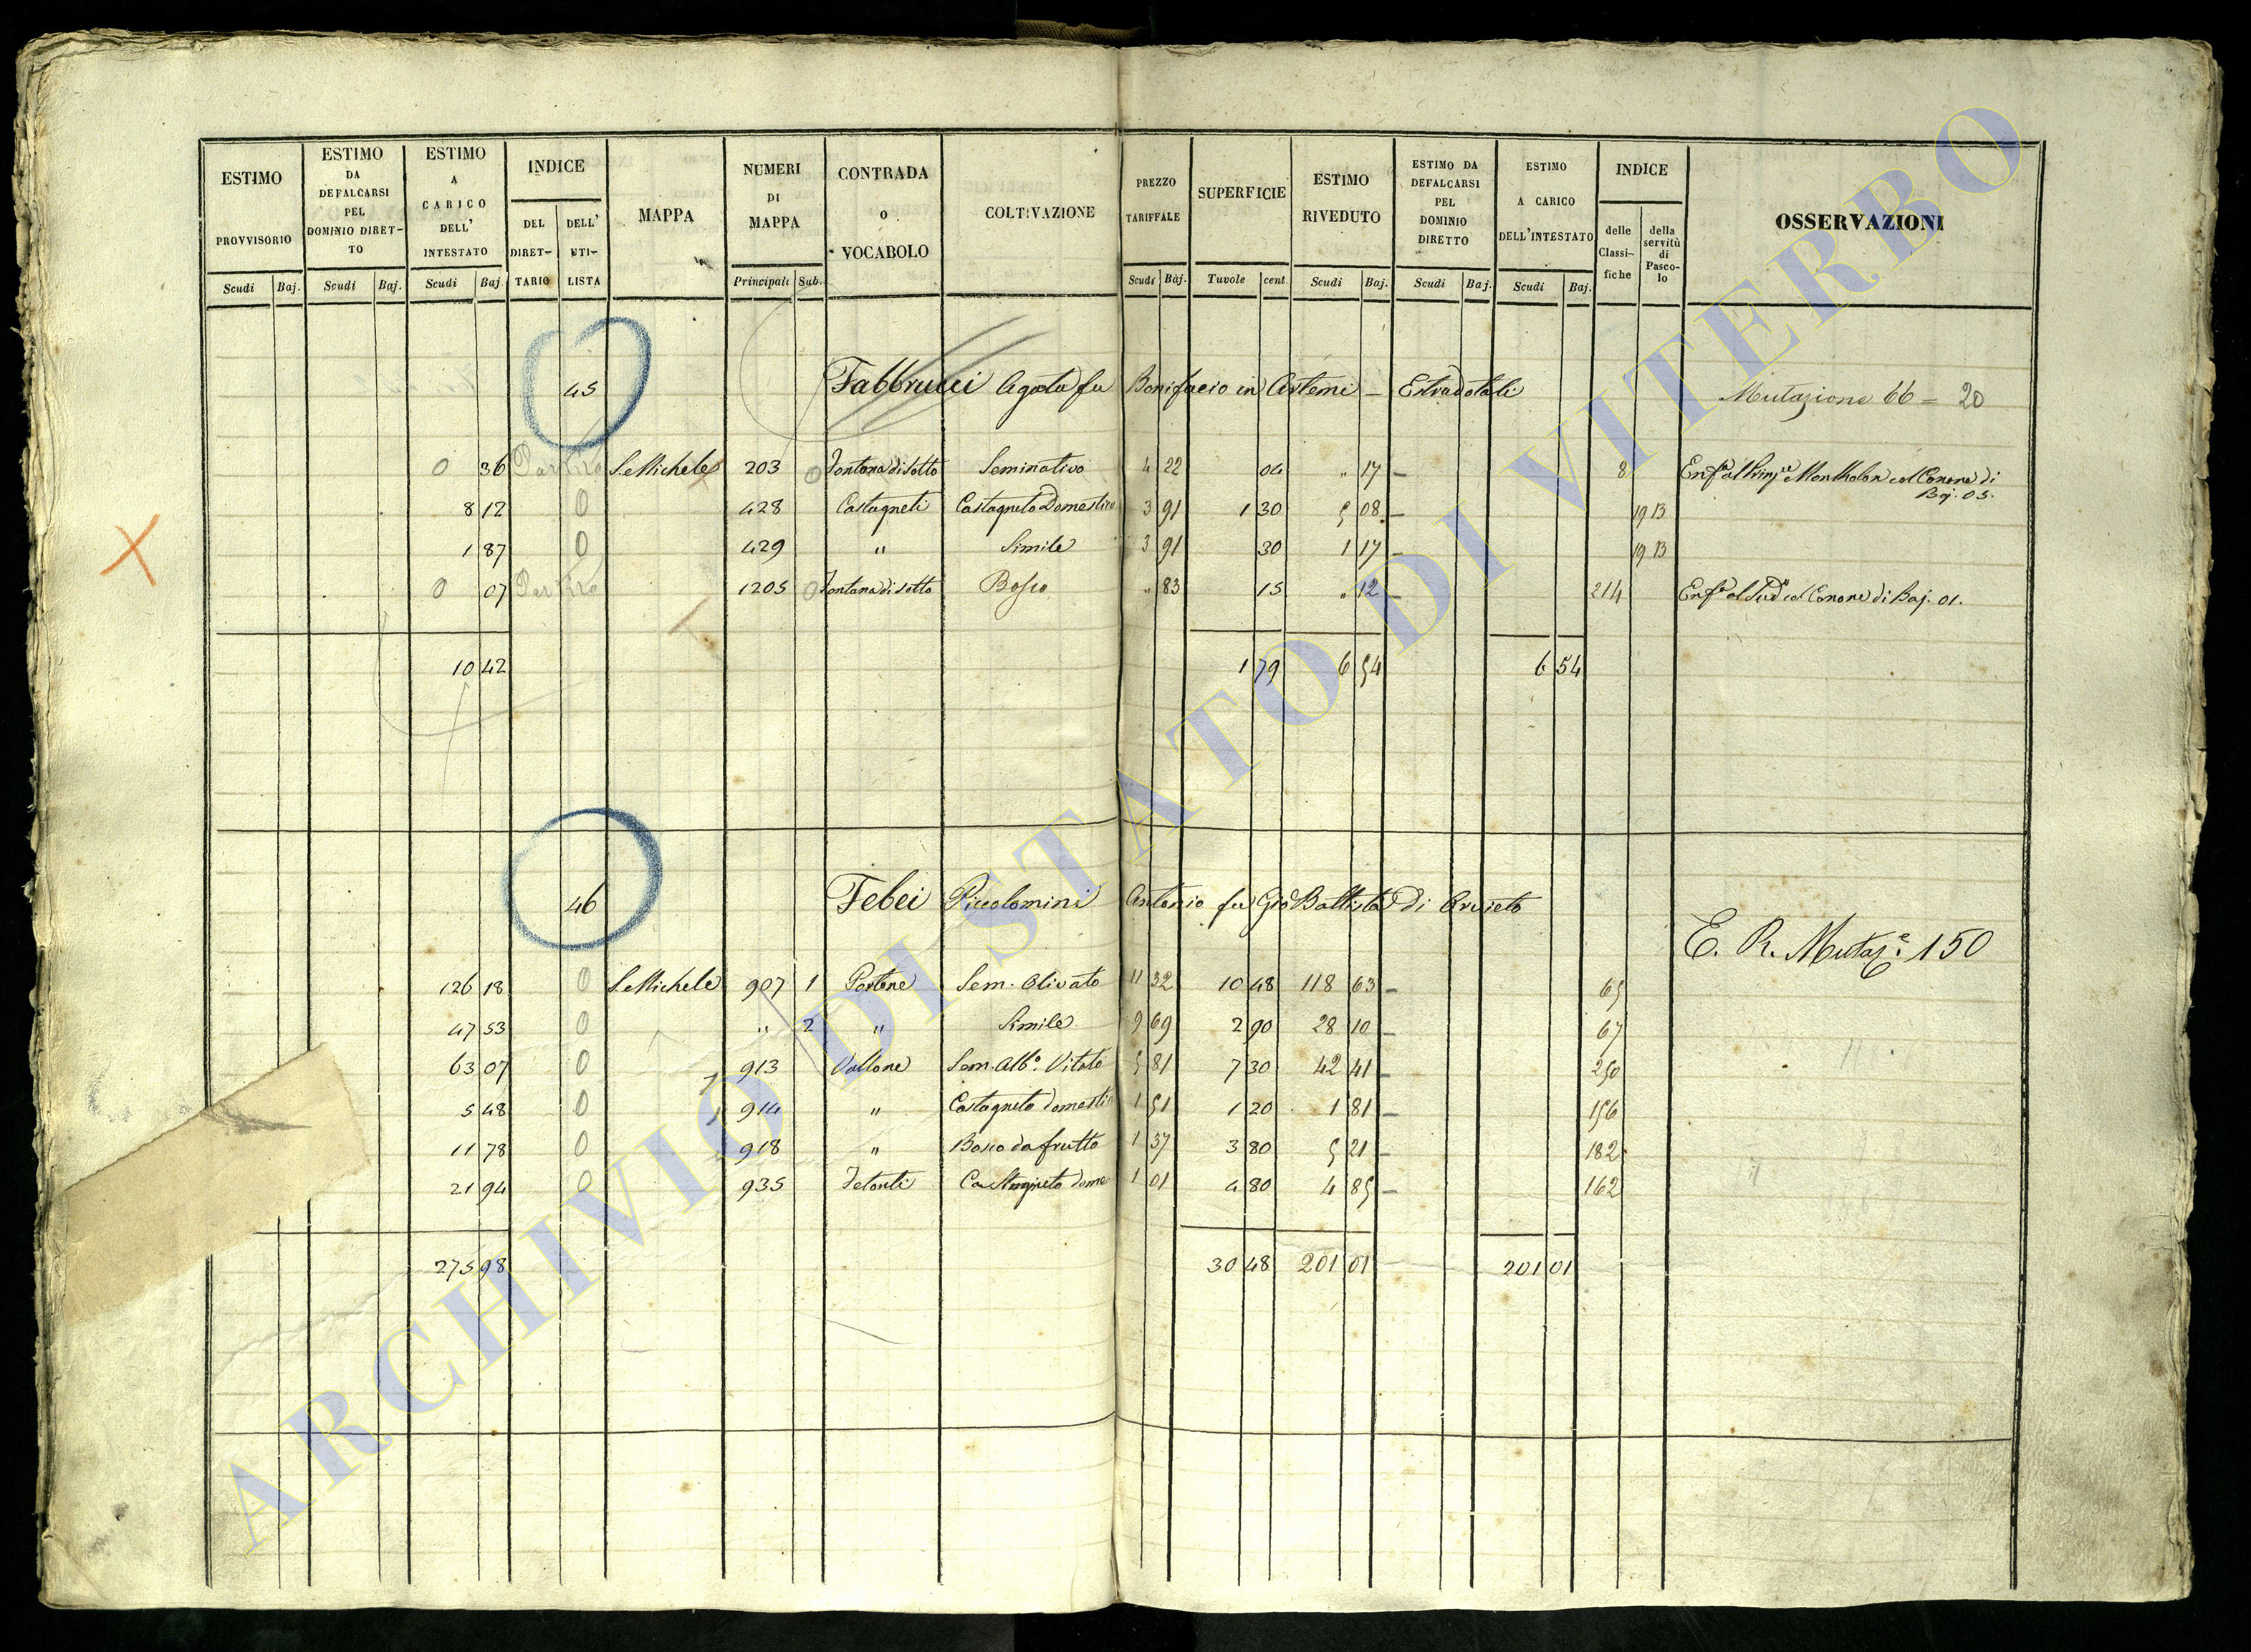 ESTIMO PROVVISORIO
Scudi Baj.
ESTIMO DA DEFALCARSI PEL DOMINIO DIRETTO
Scudi Baj.
ESTIMO A CARICO DELL' INTESTATO
Scudi Baj
INDICE
DEL DIRETTARIO
DELL' UTILISTA
MAPPA
NUMERI DI MAPPA
Principali Sub.
CONTRADA O VOCABOLO
COLTIVAZIONE
PREZZO TARIFFALE
Scudi Baj.
SUPERFICIE
Tavole cent.
ESTIMO RIVEDUTO
Scudi Baj.
ESTIMO DA DEFALCARSI PEL DOMINIO DIRETTO
Scudi Baj.
ESTIMO A CARICO DELL'INTESTATO
Scudi Baj.
INDICE
delle Classifiche
della servitù di Pascolo
OSSERVAZIONI
45 Fabbrucci Agata fu Bonifacio in Artemi – Estradotali Mutazione 66 = 20
0 36 S. Michele 203 0 Fontana di Sotto Seminativo 4 22 04 " 17 – 8 Enf.a al Princ.e col Canone di
Baj. 03.
8 12 0 428 Castagneti Castagneto Domestico 3 91 1 30 5 08 – 19 13
1 87 0 429 " Simile 3 91 30 1 17 – 19 13
0 07 1205 0 Fontana di Sotto Bosco " 83 15 " 12 – 214 Enf.a al Sud.o col Canone di Baj. 01.
10 42 1 79 6 54 6 54
46 Febei Piccolomini Antonio fu Gio Battista di Orvieto
E. R. Mutaz.e 150
126 18 0 S. Michele 907 1 Portone Sem. Olivato 11 32 10 48 118 63 – 65
47 53 0 " 2 " Simile 9 69 2 90 28 10 – 67
63 07 0 913 Vallone Sem. Alb.o Vitato 5 81 7 30 42 41 – 250
5 48 0 914 " Castagneto domestico 1 51 1 20 1 81 – 156
11 78 0 918 " Bosco da frutto 1 37 3 80 5 21 – 182
21 94 0 935 Castagneto dome 1 01 4 80 4 85 – 162
275 98 30 48 201 01 201 01
ARCHIVIO DI STATO DI VITERBO